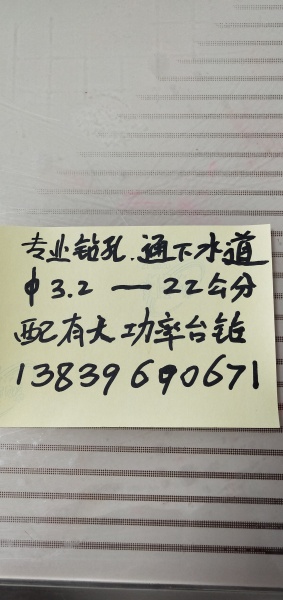 专业钻孔.通下水道
φ3.2 — 22公分
配有大功率台钻
13839690671